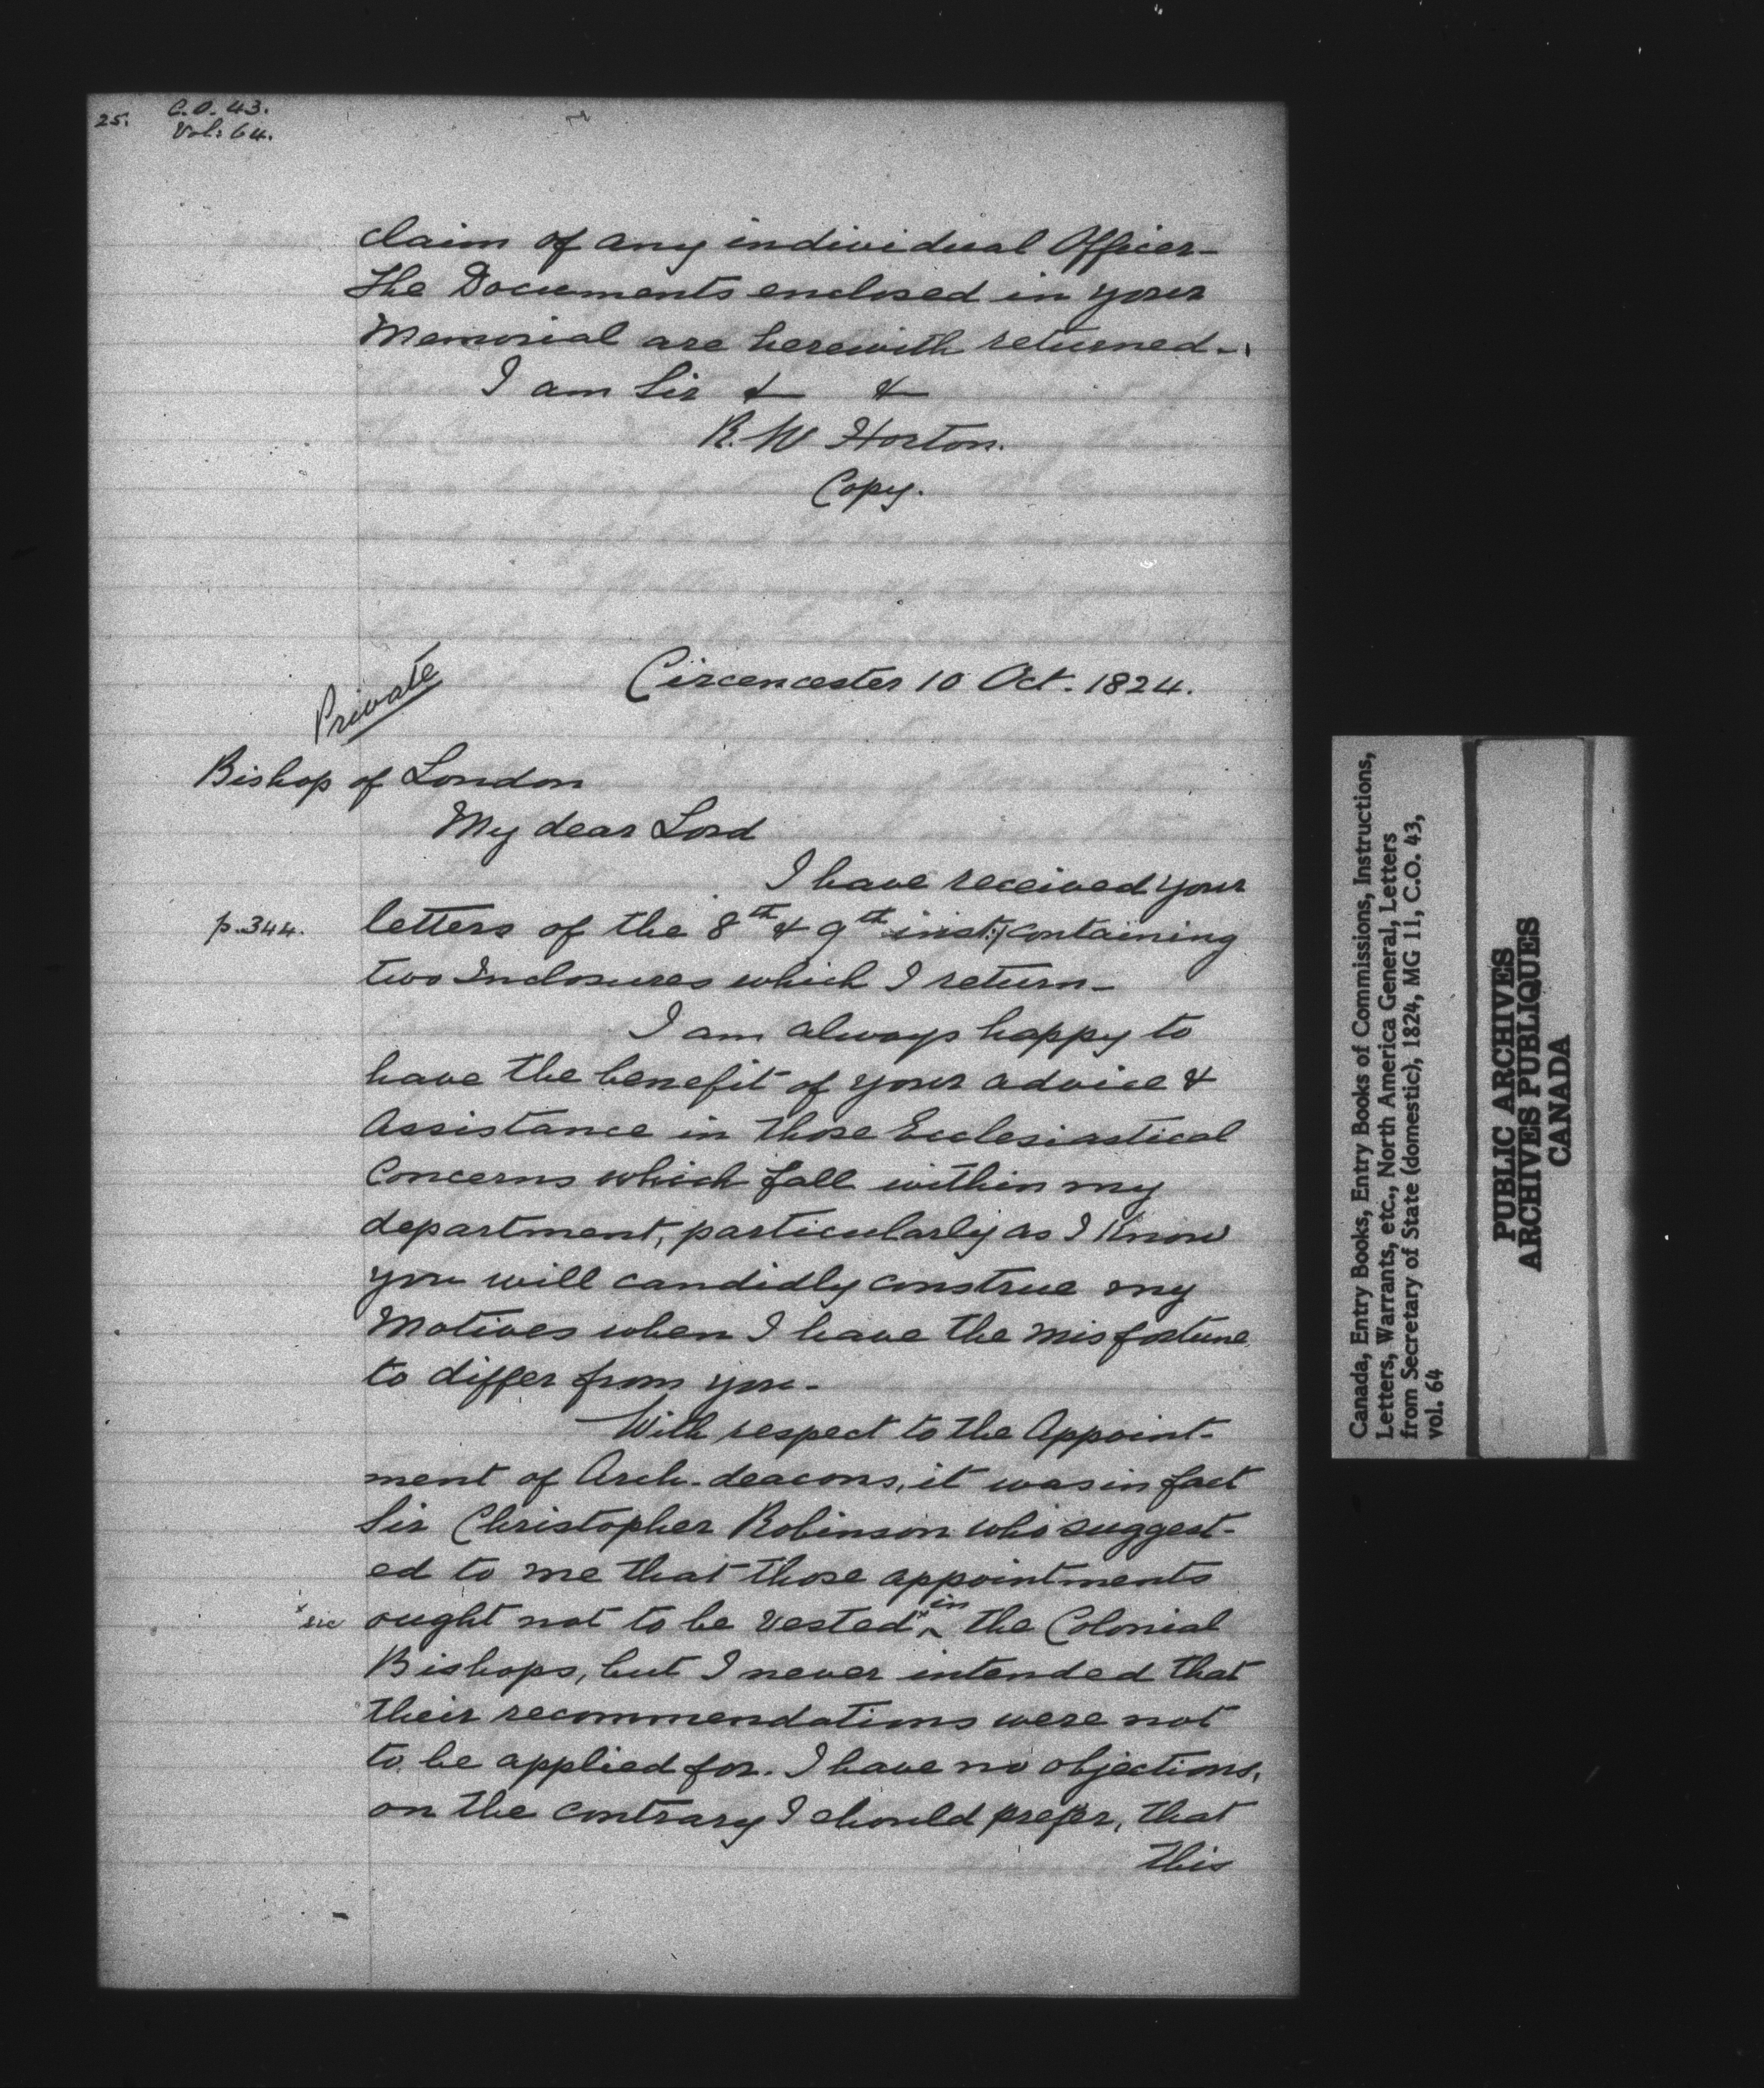 25. C.O. 43.
Vol: 64.
claim of any individual Officer—
The Documents enclosed in your
Memorial are herewith returned—.
I am Sir & &
R. W Horton.
Copy.
Private
Circencester 10 Oct. 1824.
Bishop of London
My dear Lord
I have received your
p. 344. letters of the 8th & 9th inst: containing
two Inclosures which I return—
I am always happy to
have the benefit of your advice &
Assistance in those Ecclesiastical
Concerns which fall within my
department, particularly as I know
you will candidly construe my
Motives when I have the misfortune
to differ from you—
With respect to the Appoint-
ment of Arch-deacons, it was in fact
Sir Christopher Robinson who suggest-
ed to me that those appointments
x sic ought not to be vested x in the Colonial
Bishops, but I never intended that
their recommendations were not
to be applied for. I have no objections,
on the contrary I should prefer, that
this
Canada, Entry Books, Entry Books of Commissions, Instructions,
Letters, Warrants, etc., North America General, Letters
from Secretary of State (domestic), 1824, MG 11, C.O. 43,
vol. 64
PUBLIC ARCHIVES
ARCHIVES PUBLIQUES
CANADA